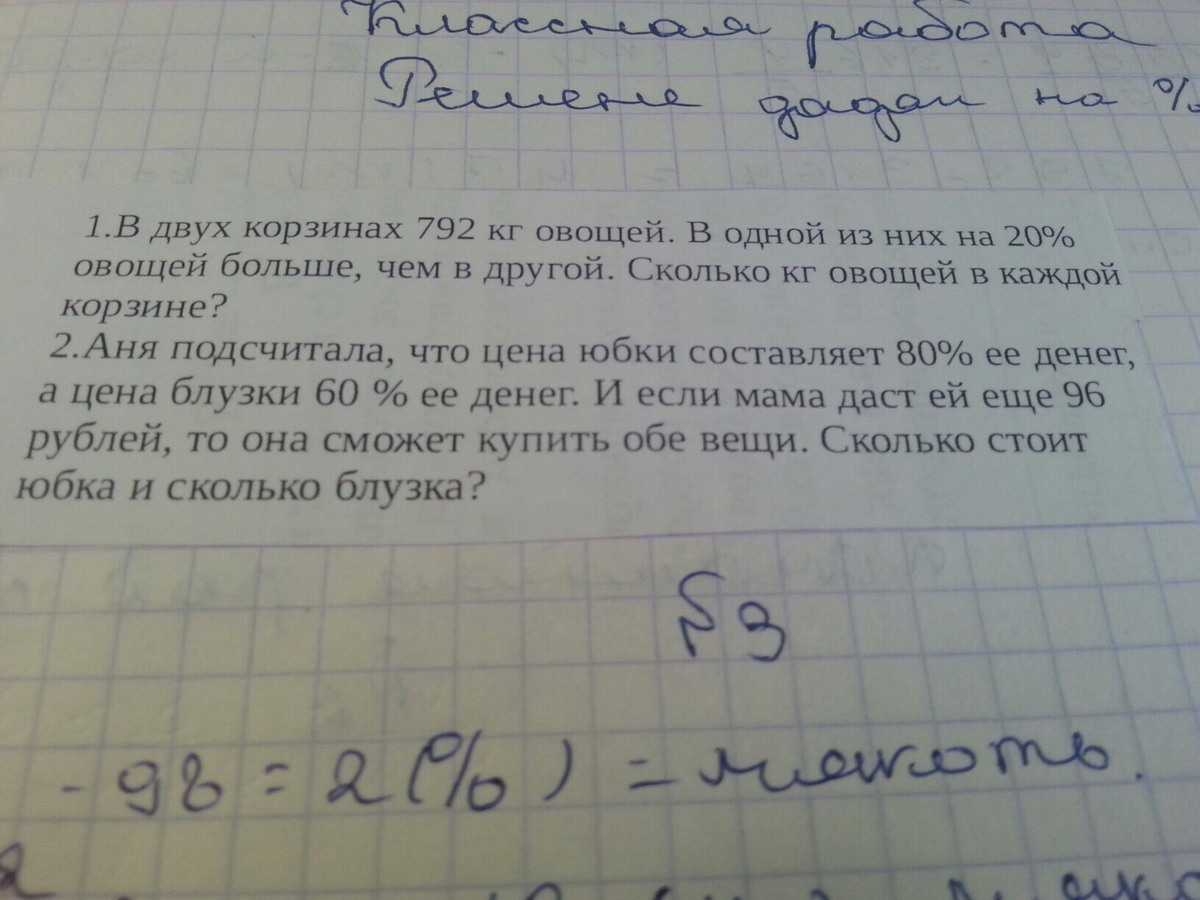 Классная работа
Решене задач на %
1.В двух корзинах 792 кг овощей. В одной из них на 20%
овощей больше, чем в другой. Сколько кг овощей в каждой
корзине?
2.Аня подсчитала, что цена юбки составляет 80% ее денег,
а цена блузки 60 % ее денег. И если мама даст ей еще 96
рублей, то она сможет купить обе вещи. Сколько стоит
юбка и сколько блузка?
- 98 = 2(%) = мякоть.